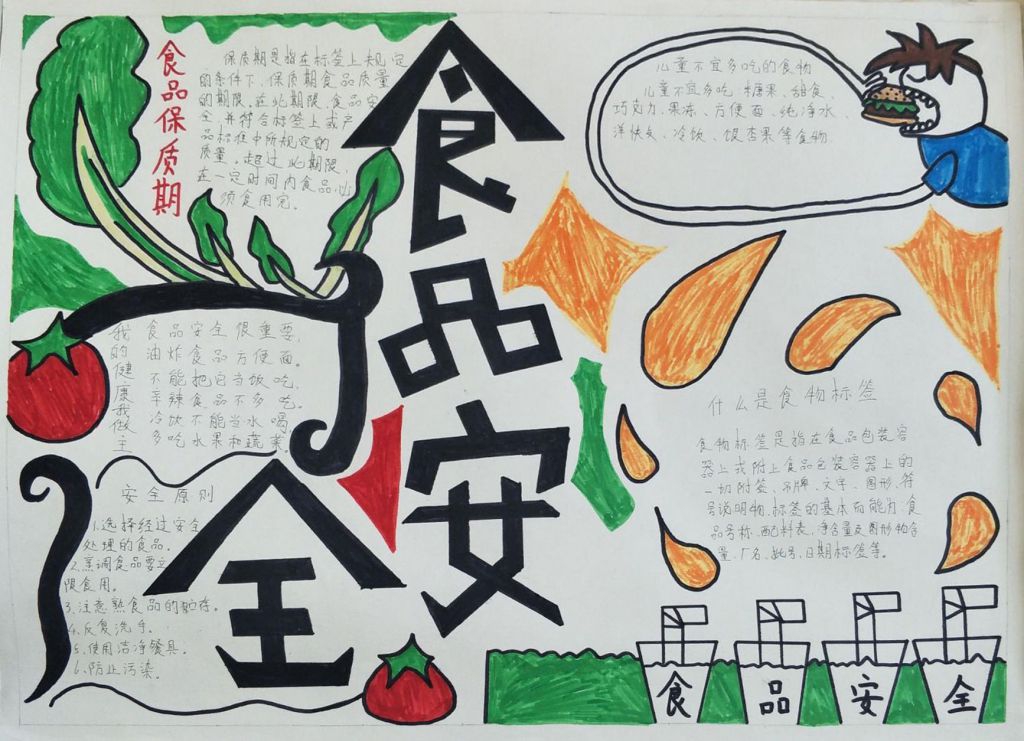 食品安全
食品保质期
保质期是指在标签上规定
的条件下、保质期食品质量
的期限。在此期限、食品安
全、并符合标签上或产
品标准中所规定的
质量。超过此期限、
在一定时间内食品必
须食用完。
儿童不宜多吃的食物
儿童不宜多吃 糖果、甜食、
巧克力、果冻、方便面、纯净水、
冷饮、银杏果等食物
我的健康我做主
食品安全很重要,
油炸食品方便面。
不能把它当饭吃,
辛辣食品不多吃。
冷饮不能当水喝,
多吃水果和蔬菜。
安全原则
1.选择经过安全
处理的食品。
2.烹调食品要立
限食用。
3.注意熟食品的贮存。
4.反复洗手。
5.使用洁净餐具。
6.防止污染。
什么是食物标签
食物标签是指在食品包装容
器上或附上食品包装容器上的
一切附签、吊牌、文字、图形、符
号说明物、标签的基本功能为:食
品名称、配料表、净含量及图形物含
量、厂名、批号、日期标签等。
食 品 安 全